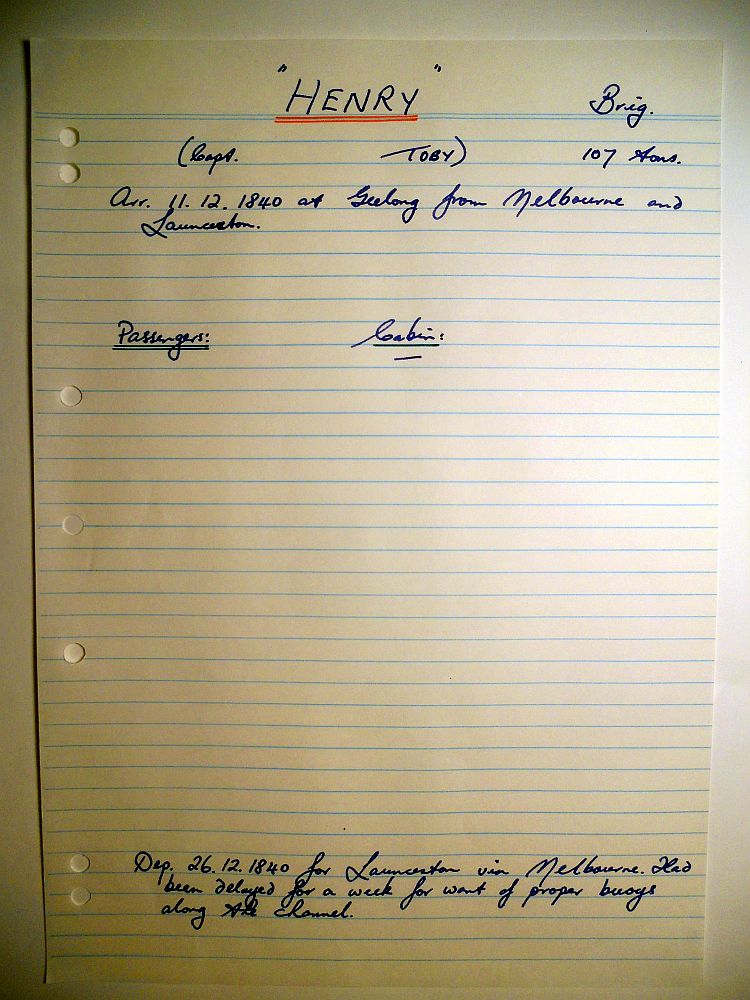 "HENRY" Brig.
(Capt. — TOBY) 107 tons.
Arr. 11.12.1840 at Geelong from Melbourne and
Launceston.
Passengers: Cabin:
—
Dep. 26.12.1840 for Launceston via Melbourne. Had
been delayed for a week for want of proper buoys
along the channel.